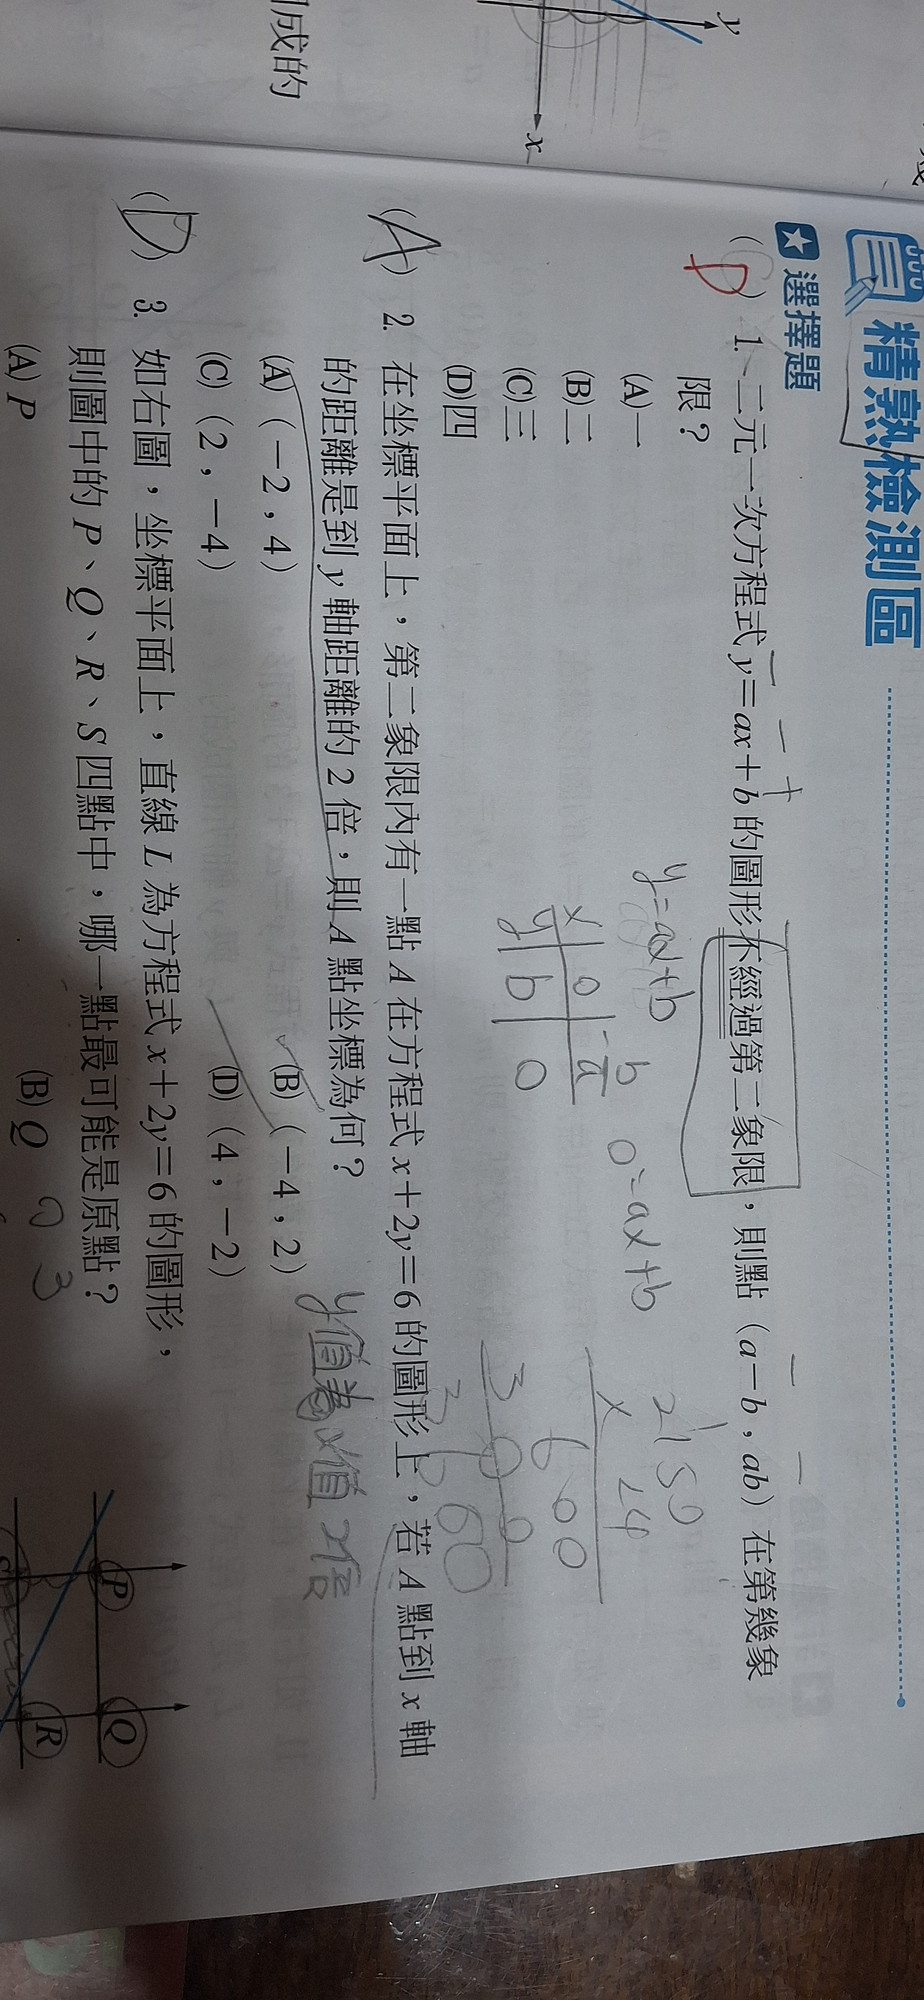 y
x
成的
精熟檢測區
選擇題
( D ) 1. 二元一次方程式 y=ax+b 的圖形不經過第二象限，則點（a－b，ab）在第幾象
限？
(A)一
(B)二
(C)三
(D)四
y=ax+b
0=ax+b
x 0
y b 0
(A) 2. 在坐標平面上，第二象限內有一點 A 在方程式 x+2y=6 的圖形上，若 A 點到 x 軸
的距離是到 y 軸距離的 2 倍，則 A 點坐標為何？
(A)（－2，4） (B)（－4，2）
(C)（2，－4） (D)（4，－2）
y值為x值2倍
(D) 3. 如右圖，坐標平面上，直線 L 為方程式 x+2y=6 的圖形，
則圖中的 P、Q、R、S 四點中，哪一點最可能是原點？
(A) P (B) Q
0 3
P
Q
R